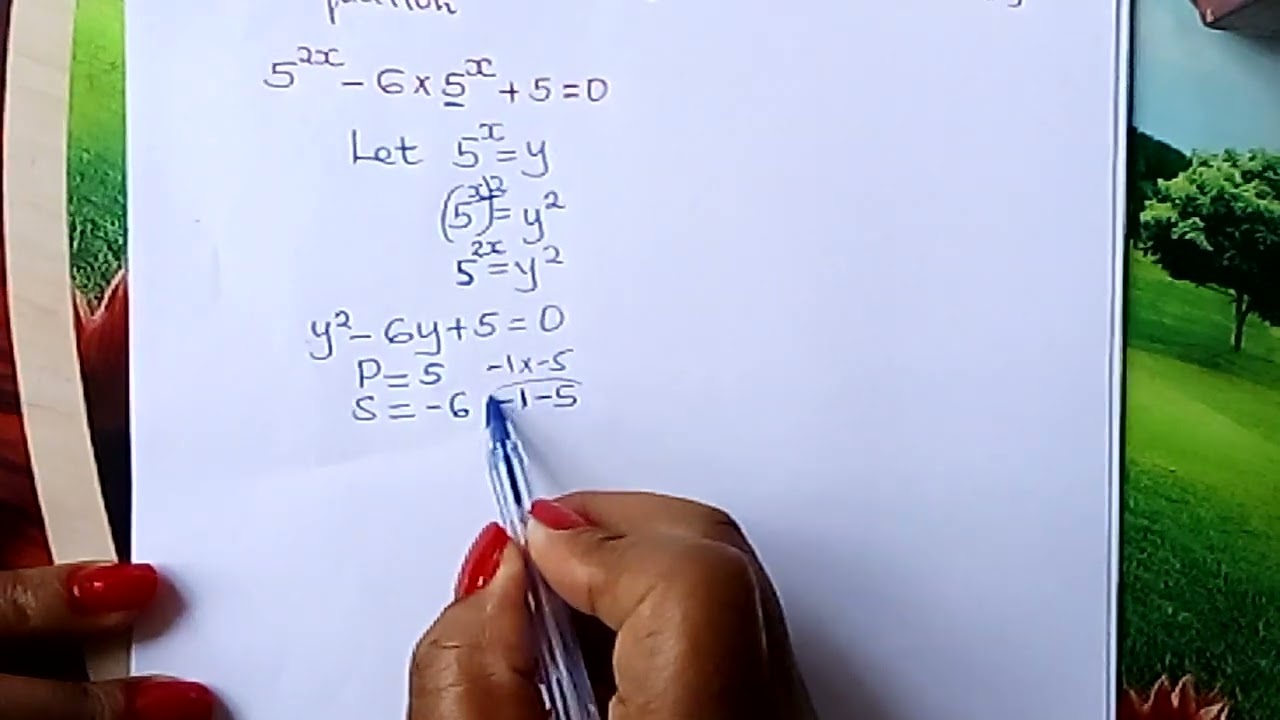 5^{2x} - 6 × 5^x + 5 = 0
Let 5^x = y
(5^x)^2 = y^2
5^{2x} = y^2
y^2 - 6y + 5 = 0
P = 5 -1 x -5
S = -6 -1 - 5